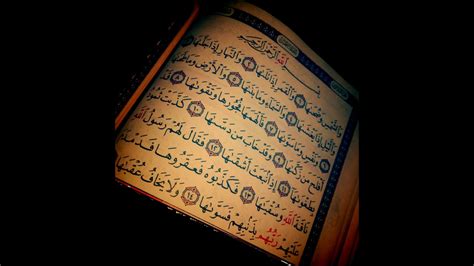 بِسْمِ ٱللَّهِ ٱلرَّحْمَٰنِ ٱلرَّحِيمِ
وَٱلشَّمْسِ وَضُحَىٰهَا ١ وَٱلْقَمَرِ إِذَا تَلَىٰهَا ٢ وَٱلنَّهَارِ إِذَا جَلَّىٰهَا ٣
وَٱلَّيْلِ إِذَا يَغْشَىٰهَا ٤ وَٱلسَّمَآءِ وَمَا بَنَىٰهَا ٥ وَٱلْأَرْضِ وَمَا طَحَىٰهَا
٦ وَنَفْسٍ وَمَا سَوَّىٰهَا ٧ فَأَلْهَمَهَا فُجُورَهَا وَتَقْوَىٰهَا ٨ قَدْ
أَفْلَحَ مَن زَكَّىٰهَا ٩ وَقَدْ خَابَ مَن دَسَّىٰهَا ١٠ كَذَّبَتْ ثَمُودُ
بِطَغْوَىٰهَآ ١١ إِذِ ٱنۢبَعَثَ أَشْقَىٰهَا ١٢ فَقَالَ لَهُمْ رَسُولُ ٱللَّهِ
نَاقَةَ ٱللَّهِ وَسُقْيَٰهَا ١٣ فَكَذَّبُوهُ فَعَقَرُوهَا فَدَمْدَمَ
عَلَيْهِمْ رَبُّهُم بِذَنۢبِهِمْ فَسَوَّىٰهَا ١٤ وَلَا يَخَافُ عُقْبَٰهَا